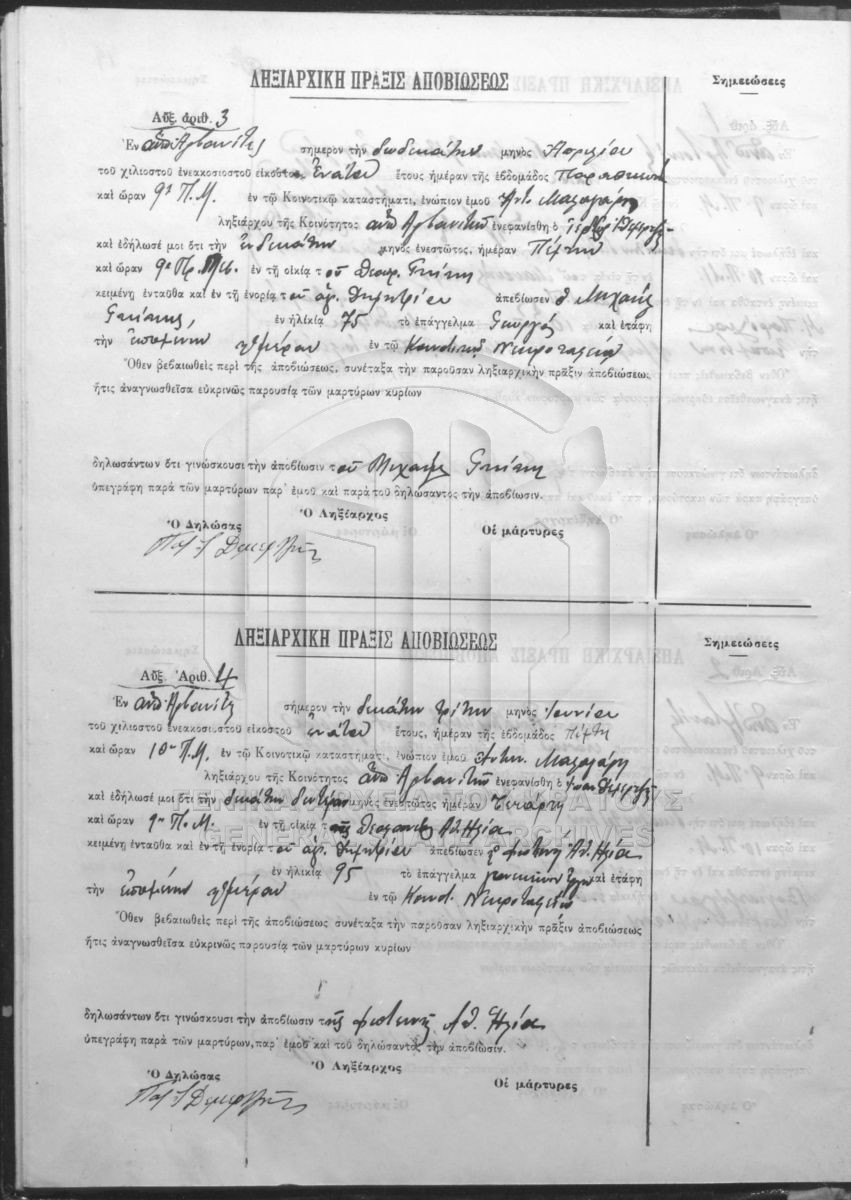 ΛΗΞΙΑΡΧΙΚΗ ΠΡΑΞΙΣ ΑΠΟΒΙΩΣΕΩΣ
Σημειώσεις
Αὔξ. ἀριθ. 3
Ἐν σήμερον τὴν δωδεκάτην μηνὸς Ἀπριλίου
τοῦ χιλιοστοῦ ἐνεακοσιοστοῦ εἰκοστοῦ ἐνάτου ἔτους ἡμέραν τῆς ἑβδομάδος Παρασκευὴ
καὶ ὥραν 9η Π.Μ. ἐν τῷ Κοινοτικῷ καταστήματι, ἐνώπιον ἐμοῦ Ἀντ.
ληξιάρχου τῆς Κοινότητος ἐνεφανίσθη ὁ
καὶ ἐδήλωσέ μοι ὅτι τὴν ἑνδεκάτην μηνὸς ἐνεστῶτος, ἡμέραν Πέμπτην
καὶ ὥραν 9η ἐν τῇ οἰκίᾳ τοῦ Γκίκη
κειμένῃ ἐνταῦθα καὶ ἐν τῇ ἐνορίᾳ τοῦ ἁγ. Δημητρίου ἀπεβίωσεν ὁ Μιχαὴλ
Γκίκης, ἐν ἡλικίᾳ 75 τὸ ἐπάγγελμα Γεωργὸς καὶ ἐτάφη
τὴν ἑπομένην ἡμέραν ἐν τῷ Νεκροταφείῳ
Ὅθεν βεβαιωθεὶς περὶ τῆς ἀποβιώσεως, συνέταξα τὴν παροῦσαν ληξιαρχικὴν πρᾶξιν ἀποβιώσεως,
ἥτις ἀναγνωσθεῖσα εὐκρινῶς παρουσίᾳ τῶν μαρτύρων κυρίων
δηλωσάντων ὅτι γινώσκουσι τὴν ἀποβίωσιν τοῦ Μιχαὴλ Γκίκη
ὑπεγράφη παρὰ τῶν μαρτύρων παρ' ἐμοῦ καὶ παρὰ τοῦ δηλώσαντος τὴν ἀποβίωσιν.
Ὁ Δηλώσας
Ὁ Ληξίαρχος
Οἱ μάρτυρες
ΛΗΞΙΑΡΧΙΚΗ ΠΡΑΞΙΣ ΑΠΟΒΙΩΣΕΩΣ
Σημειώσεις
Αὔξ. Ἀριθ. 4
Ἐν σήμερον τὴν δεκάτην τρίτην μηνὸς Ἰουνίου
τοῦ χιλιοστοῦ ἐνεακοσιοστοῦ εἰκοστοῦ ἐνάτου ἔτους, ἡμέραν τῆς ἑβδομάδος Πέμπτη
καὶ ὥραν 10η Π.Μ. ἐν τῷ Κοινοτικῷ καταστήματι, ἐνώπιον ἐμοῦ Ἀντων.
ληξιάρχου τῆς Κοινότητος ἐνεφανίσθη ὁ
καὶ ἐδήλωσέ μοι ὅτι τὴν δεκάτην δευτέραν μηνὸς ἐνεστῶτος ἡμέραν Τετάρτη
ΓΕΝΙΚΑ ΑΡΧΕΙΑ ΤΟΥ ΚΡΑΤΟΥΣ
καὶ ὥραν 9η Π.Μ. ἐν τῇ οἰκίᾳ τῆς Ἠλία
GENERAL STATE ARCHIVES
κειμένῃ ἐνταῦθα καὶ ἐν τῇ ἐνορίᾳ τοῦ ἁγ. Δημητρίου ἀπεβίωσεν ἡ Φωτεινὴ Ἀθ. Ἠλία
ἐν ἡλικίᾳ 95 τὸ ἐπάγγελμα καὶ ἐτάφη
τὴν ἑπομένην ἡμέραν ἐν τῷ Κοινοτ. Νεκροταφείῳ
Ὅθεν βεβαιωθεὶς περὶ τῆς ἀποβιώσεως συνέταξα τὴν παροῦσαν ληξιαρχικὴν πρᾶξιν ἀποβιώσεως
ἥτις ἀναγνωσθεῖσα εὐκρινῶς παρουσίᾳ τῶν μαρτύρων κυρίων
δηλωσάντων ὅτι γινώσκουσι τὴν ἀποβίωσιν τῆς Φωτεινῆς Ἀθ. Ἠλία
ὑπεγράφη παρὰ τῶν μαρτύρων, παρ' ἐμοῦ καὶ τοῦ δηλώσαντος τὴν ἀποβίωσιν.
Ὁ Δηλώσας
Ὁ Ληξίαρχος
Οἱ μάρτυρες